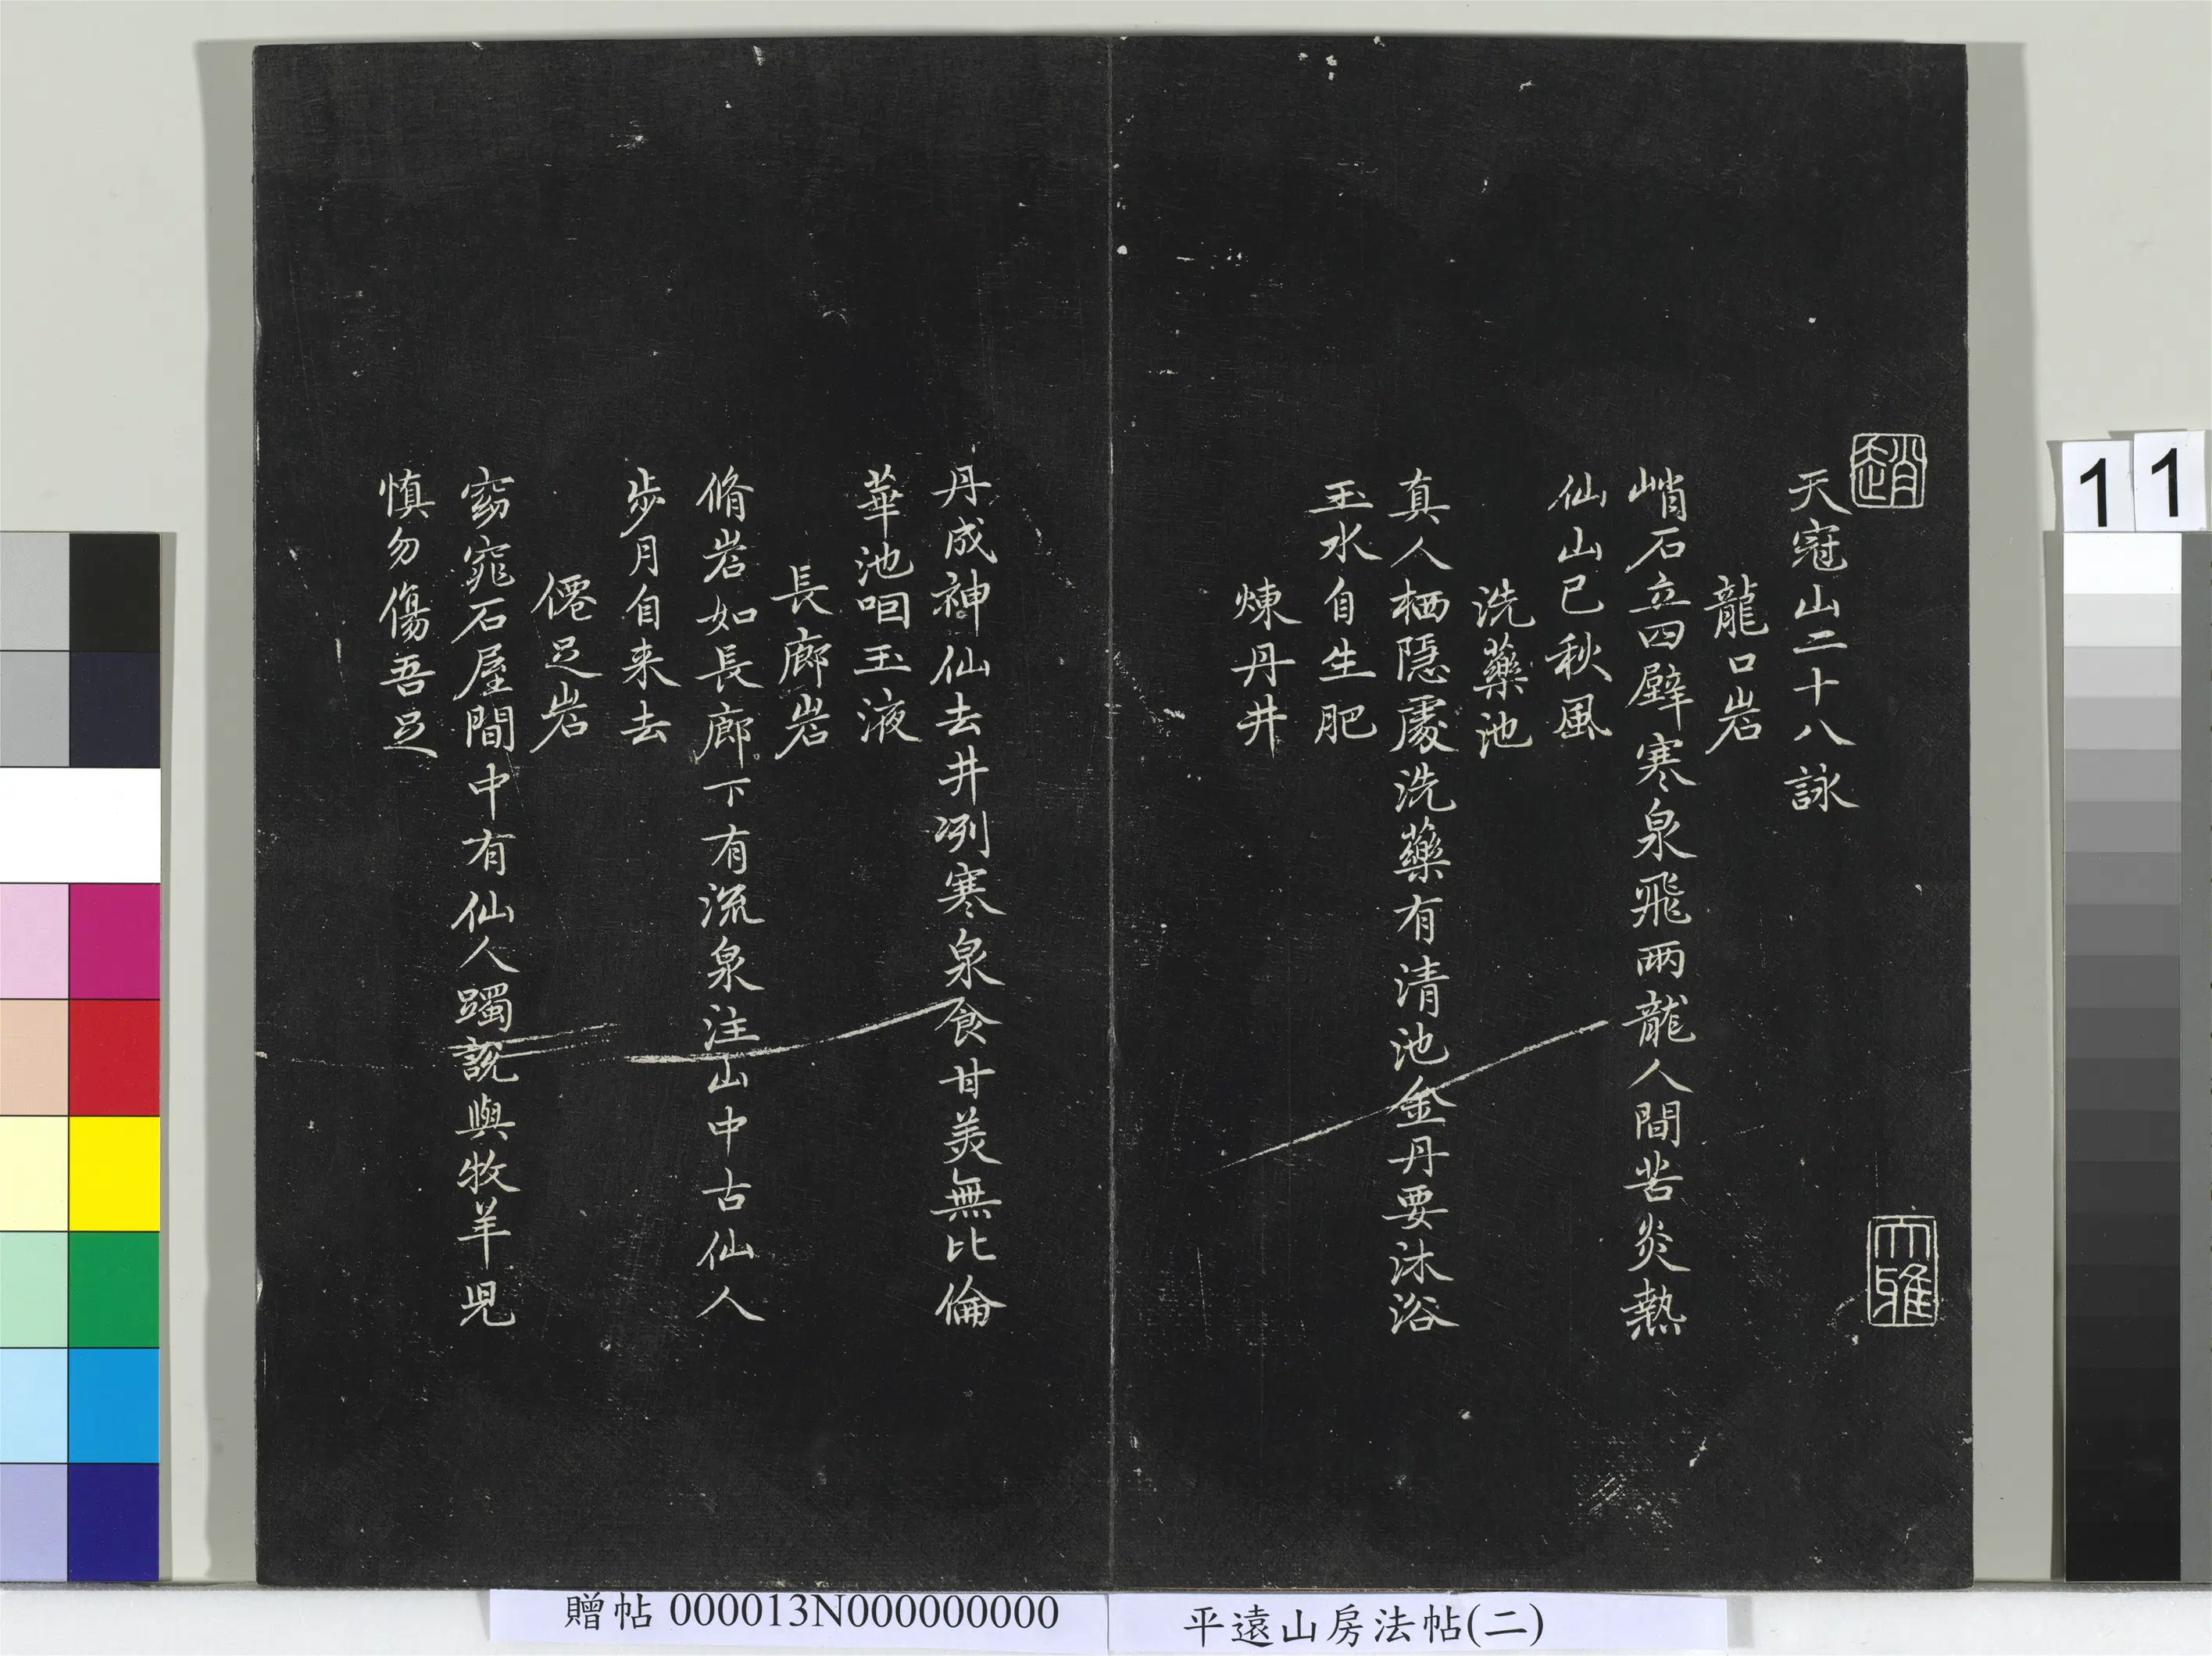 趙
大雅
天冠山二十八詠
龍口岩
峭石立四壁寒泉飛兩龍人間苦炎熱
仙山已秋風
洗藥池
真人栖隱處洗藥有清池金丹要沐浴
玉水自生肥
煉丹井
丹成神仙去井冽寒泉食甘美無比倫
華池咽玉液
長廊岩
脩岩如長廊下有流泉注山中古仙人
步月自来去
僊足岩
窈窕石屋間中有仙人躅説與牧羊児
慎勿傷吾足
11
贈帖 000013N000000000
平遠山房法帖(二)